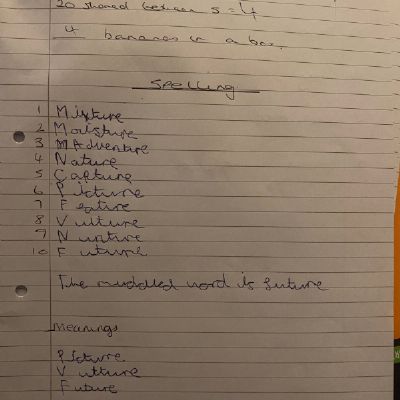 20 shared between 5 = 4
4 bananas in a box.
Spelling
1 Mixture
2 Moisture
3 Adventure
4 Nature
5 Capture
6 Picture
7 Feature
8 Vulture
9 Nurture
10 Future
The muddled word is future
Meanings
Picture
Vulture
Future